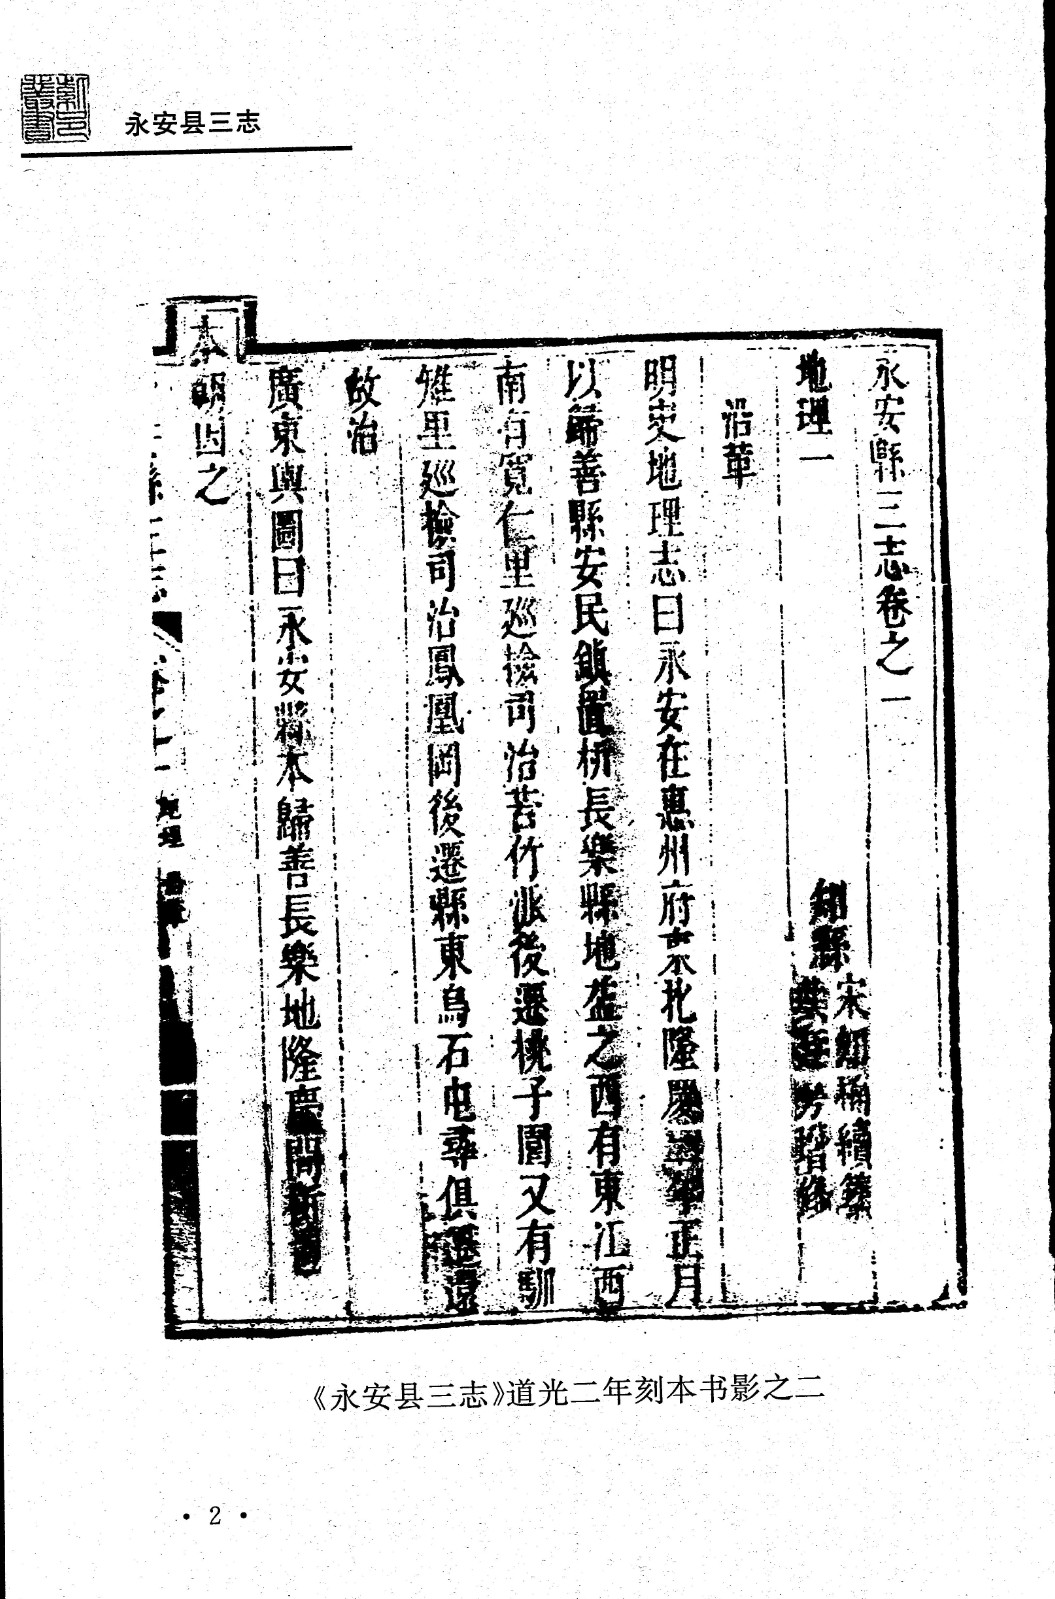 紫邑叢書
永安县三志
永安縣三志卷之一
知縣
宋如楠續纂
葉廷芳㫮修
地理一
沿革
明史地理志曰永安在惠州府東北隆慶三年正月
以歸善縣安民鎮置析長樂縣地益之西有東江西
南有寬仁里巡檢司治苦竹派後遷桃子園又有馴
雉里巡檢司治鳳凰岡後遷縣東烏石屯尋俱遷還
故治
廣東輿圖曰永安縣本歸善長樂地隆慶間析置
本朝因之
縣三志 卷之一 地理 沿革
《永安县三志》道光二年刻本书影之二
· 2 ·